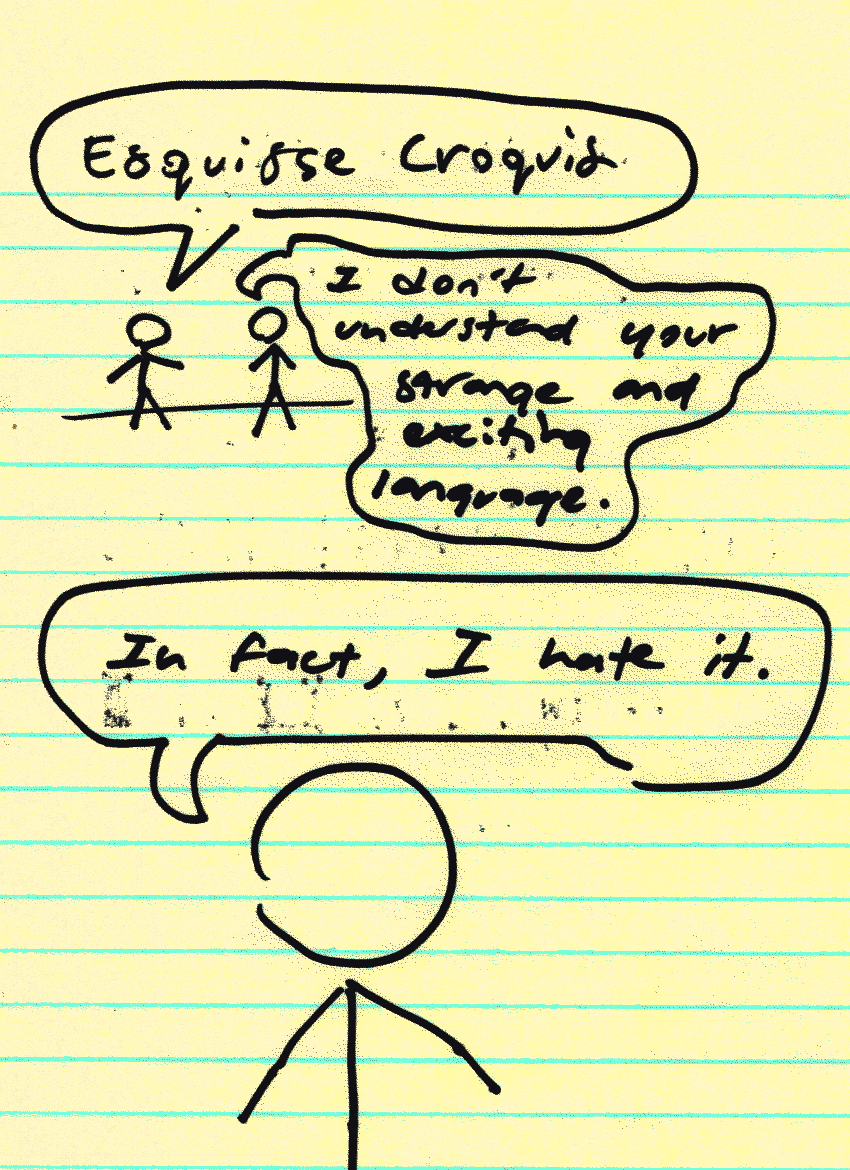 Esquisse Croquis
I don't
understand your
strange and
exciting
language.
In fact, I hate it.